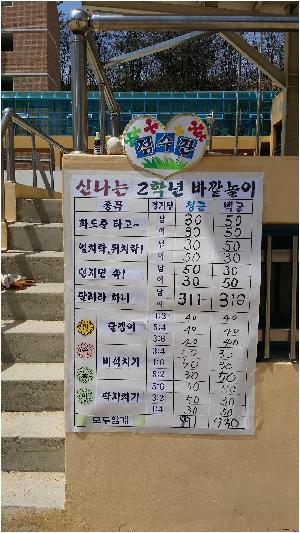 점수판
신나는 2학년 바깥놀이
종목 경기당 청군 백군
파도를 타고~ 남 30 50
여 30 50
엎치락, 뒤치락! 남 30 50
여 50 30
던지면 쏙! 남 50 30
여 30 50
달려라 하니 311 318
달팽이 1:3 40 40
5:4 40 40
2:6 40 40
비석치기 3:4
1:6 30
2:5 30 50
딱지치기 5:6 30
3:2 50 30
1:4 30 50
모두합계 930